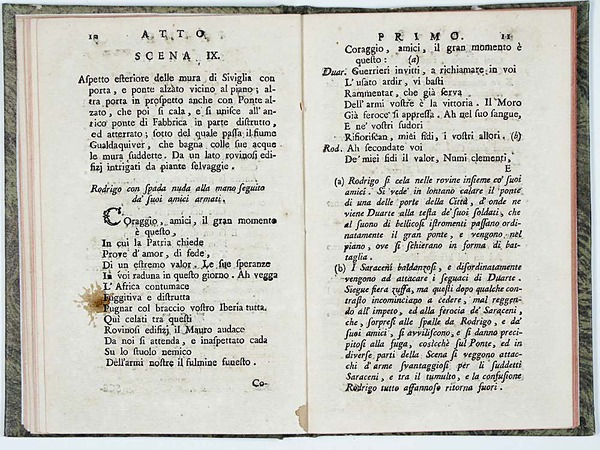 10 ATTO
SCENA IX.
Aspetto esteriore delle mura di Siviglia con
porta, e ponte alzato vicino al piano; al-
tra porta in prospetto anche con Ponte al-
zato, che poi si cala, e si unisce all' an-
tico ponte di Fabbrica in parte distrutto,
ed atterrato; sotto del quale passa il fiume
Gualdaquiver, che bagna colle sue acque
le mura suddette. Da un lato rovinosi edi-
fizj intrigati da piante selvaggie.
Rodrigo con spada nuda alla mano seguito
da' suoi amici armati.
COraggio, amici, il gran momento
è questo,
In cui la Patria chiede
Prove d' amor, di fede,
Di un estremo valor. Le sue speranze
In voi raduna in questo giorno. Ah vegga
L' Africa contumace
Fuggitiva e distrutta
Pugnar col braccio vostro Iberia tutta.
Qui celati tra questi
Rovinosi edifizj il Mauro audace
Da noi si attenda, e inaspettato cada
Su lo stuolo nemico
Dell'armi nostre il fulmine funesto.
Co-
PRIMO. 11
Coraggio, amici, il gran momento è
questo: (a)
Duar. Guerrieri invitti, a richiamare in voi
L' usato ardir, vi basti
Rammentar, che già serva
Dell' armi vostre è la vittoria. Il Moro
Già feroce si appressa. Ah nel suo sangue,
E ne' vostri sudori
Rifioriscan, miei fidi, i vostri allori. (b)
Rod. Ah secondate voi
De' miei fidi il valor, Numi clementi,
E
(a) Rodrigo si cela nelle rovine insieme co' suoi
amici. Si vede in lontano calare il ponte
di una delle porte della Città, d' onde ne
viene Duarte alla testa de' suoi soldati, che
al suono di bellicosi istromenti passano ordi-
natamente il gran ponte, e vengono nel
piano, ove si schierano in forma di bat-
taglia.
(b) I Saraceni baldanzosi, e disordinatamente
vengono ad attacare i seguaci di Duarte.
Siegue fiera zuffa, ma questi dopo qualche con-
trasto incominciano a cedere, mal reggen-
do all' impeto, ed alla ferocia de' Saraceni,
che, sorpresi alle spalle da Rodrigo, e da'
suoi amici, si avviliscono, e si danno preci-
pitosi alla fuga, cosicchè sul Ponte, ed in
diverse parti della Scena si veggono attac-
chi d' arme svantaggiosi per li suddetti
Saraceni, e tra il tumulto, e la confusione
Rodrigo tutto affannoso ritorna fuori.